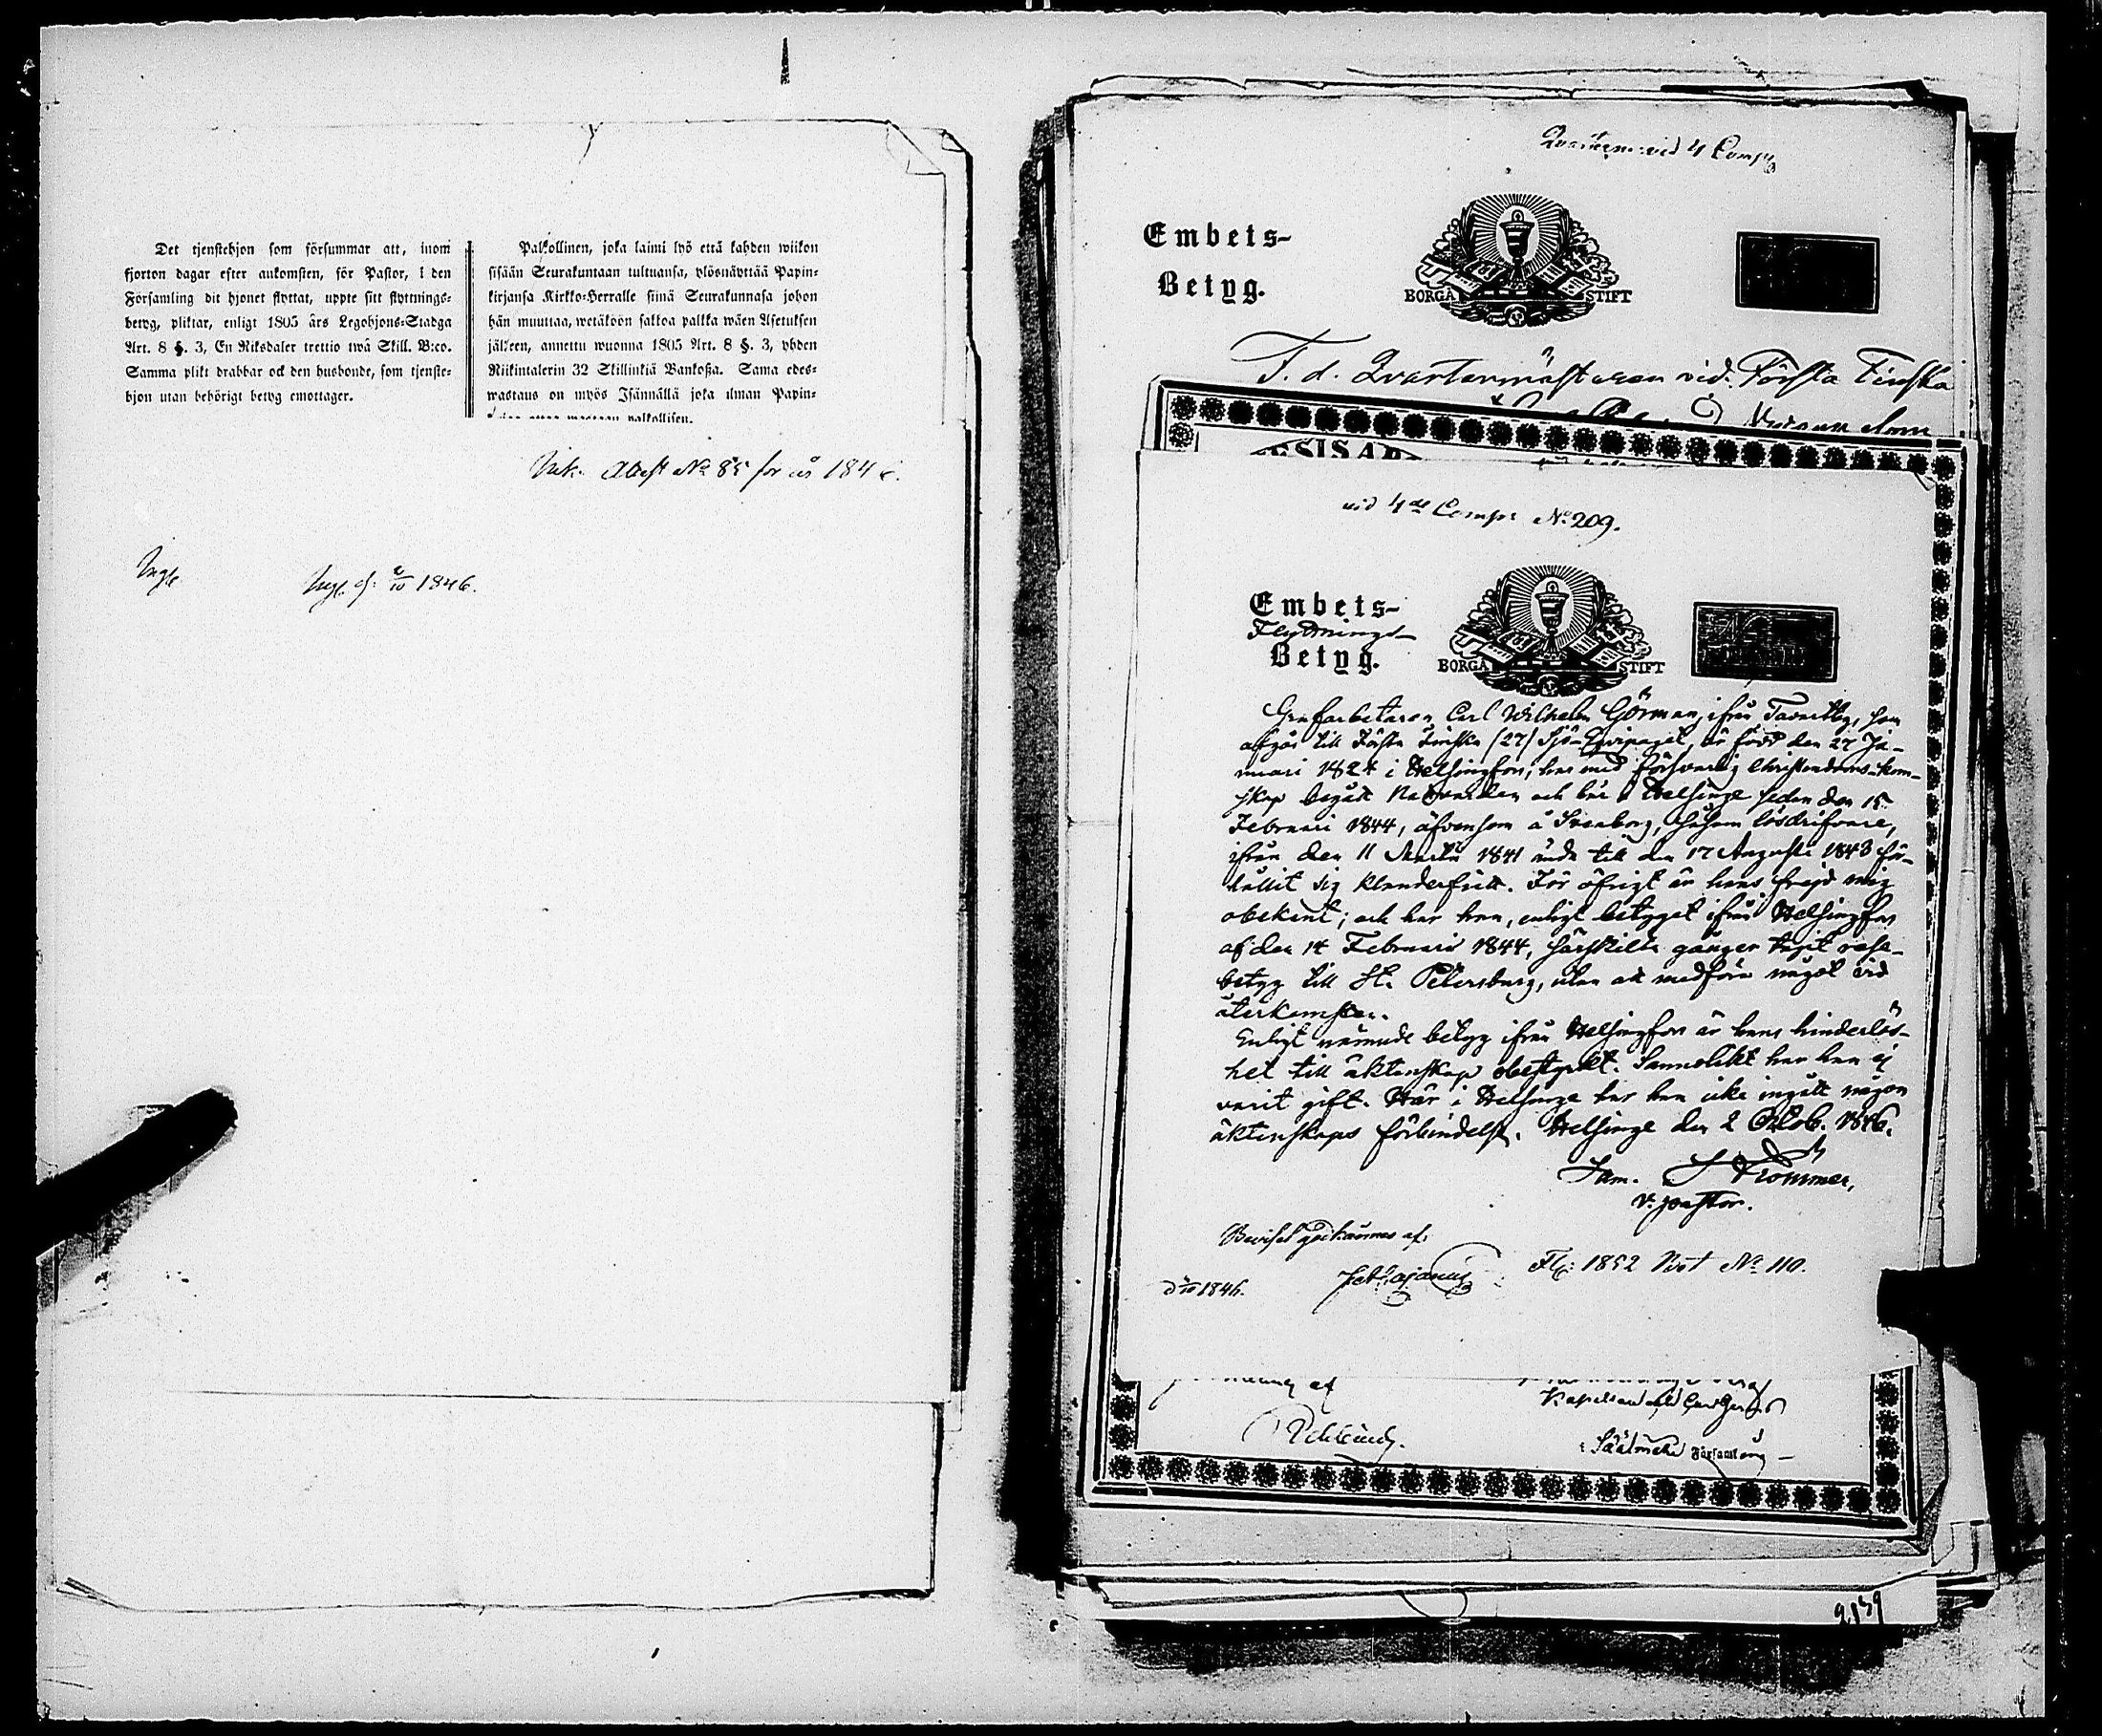 Det tjenstehjon som försummar att, inom
fjorton dagar efter ankomsten, för Pastor, i den
Församling dit hjonet flyttat, uppte sitt flyttnings-
betyg, pliktar, enligt 1805 års Legohjons-Stadga
Art. 8 §. 3, En Riksdaler trettio twå Skill. B:co.
Samma plikt drabbar ock den husbonde, som tjenste-
hjon utan behörigt betyg emottager.
Palkollinen, joka laimi lyö että kahden wiikon
sisään Seurakuntaan tultuansa, ylösnäyttää Papin-
kirjansa Kirkko-Herralle siinä Seurakunnasa johon
hän muuttaa, wetäköön sakkoa palkka wäen Asetuksen
jälkeen, annettu wuonna 1805 Art. 8 §. 3, yhden
Riikintalerin 32 Skillinkiä Bankosa. Sama edes-
wastaus on myös Isännällä joka ilman Papin-
palkollisen.
Attest No 85 for år 184
1846.
vid 4 Comp
Embets-
Betyg.
BORGÅ STIFT
T. d. Qvartermästaren vid Första Finska
vid 4de Comp: No 209.
Embets-
Flyttnings-
Betyg.
BORGÅ STIFT
Grufarbetaren Carl Wilhelm Görman, ifrån Tavastby, som
afgår till Första Finska (27) Sjö-Eqvipaget, är född den 27 Ja-
nuari 1824 i Helsingfors, har med försvarlig Christendoms-kun-
skap begått Nattvarden och här i Helsinge sedan den 15
Februari 1844, äfvensom å Sveaborg, såsom lösdrifvare,
ifrån den 11 Martii 1841 ända till den 17 Augusti 1843 för-
hållit sig klanderfritt. För öfrigt är hans frejd mig
obekant; och har han, enligt betyget ifrån Helsingfors
af den 14 Februari 1844, särskilta gånger tagit rese-
betyg till St. Petersburg, utan att medföra något vid
återkomsten.
Enligt nämnde betyg ifrån Helsingfors är hans hinderlös-
het till äktenskap obestyrkt. Sannolikt har han ej
varit gift. Här i Helsinge har han icke ingått någon
äktenskaps förbindelse. Helsinge den 2 Octob. 1846.
Sam.
v. pastor.
Beviset godkännes af:
1846.
Fl: 1852 No 110.
af
i Församling